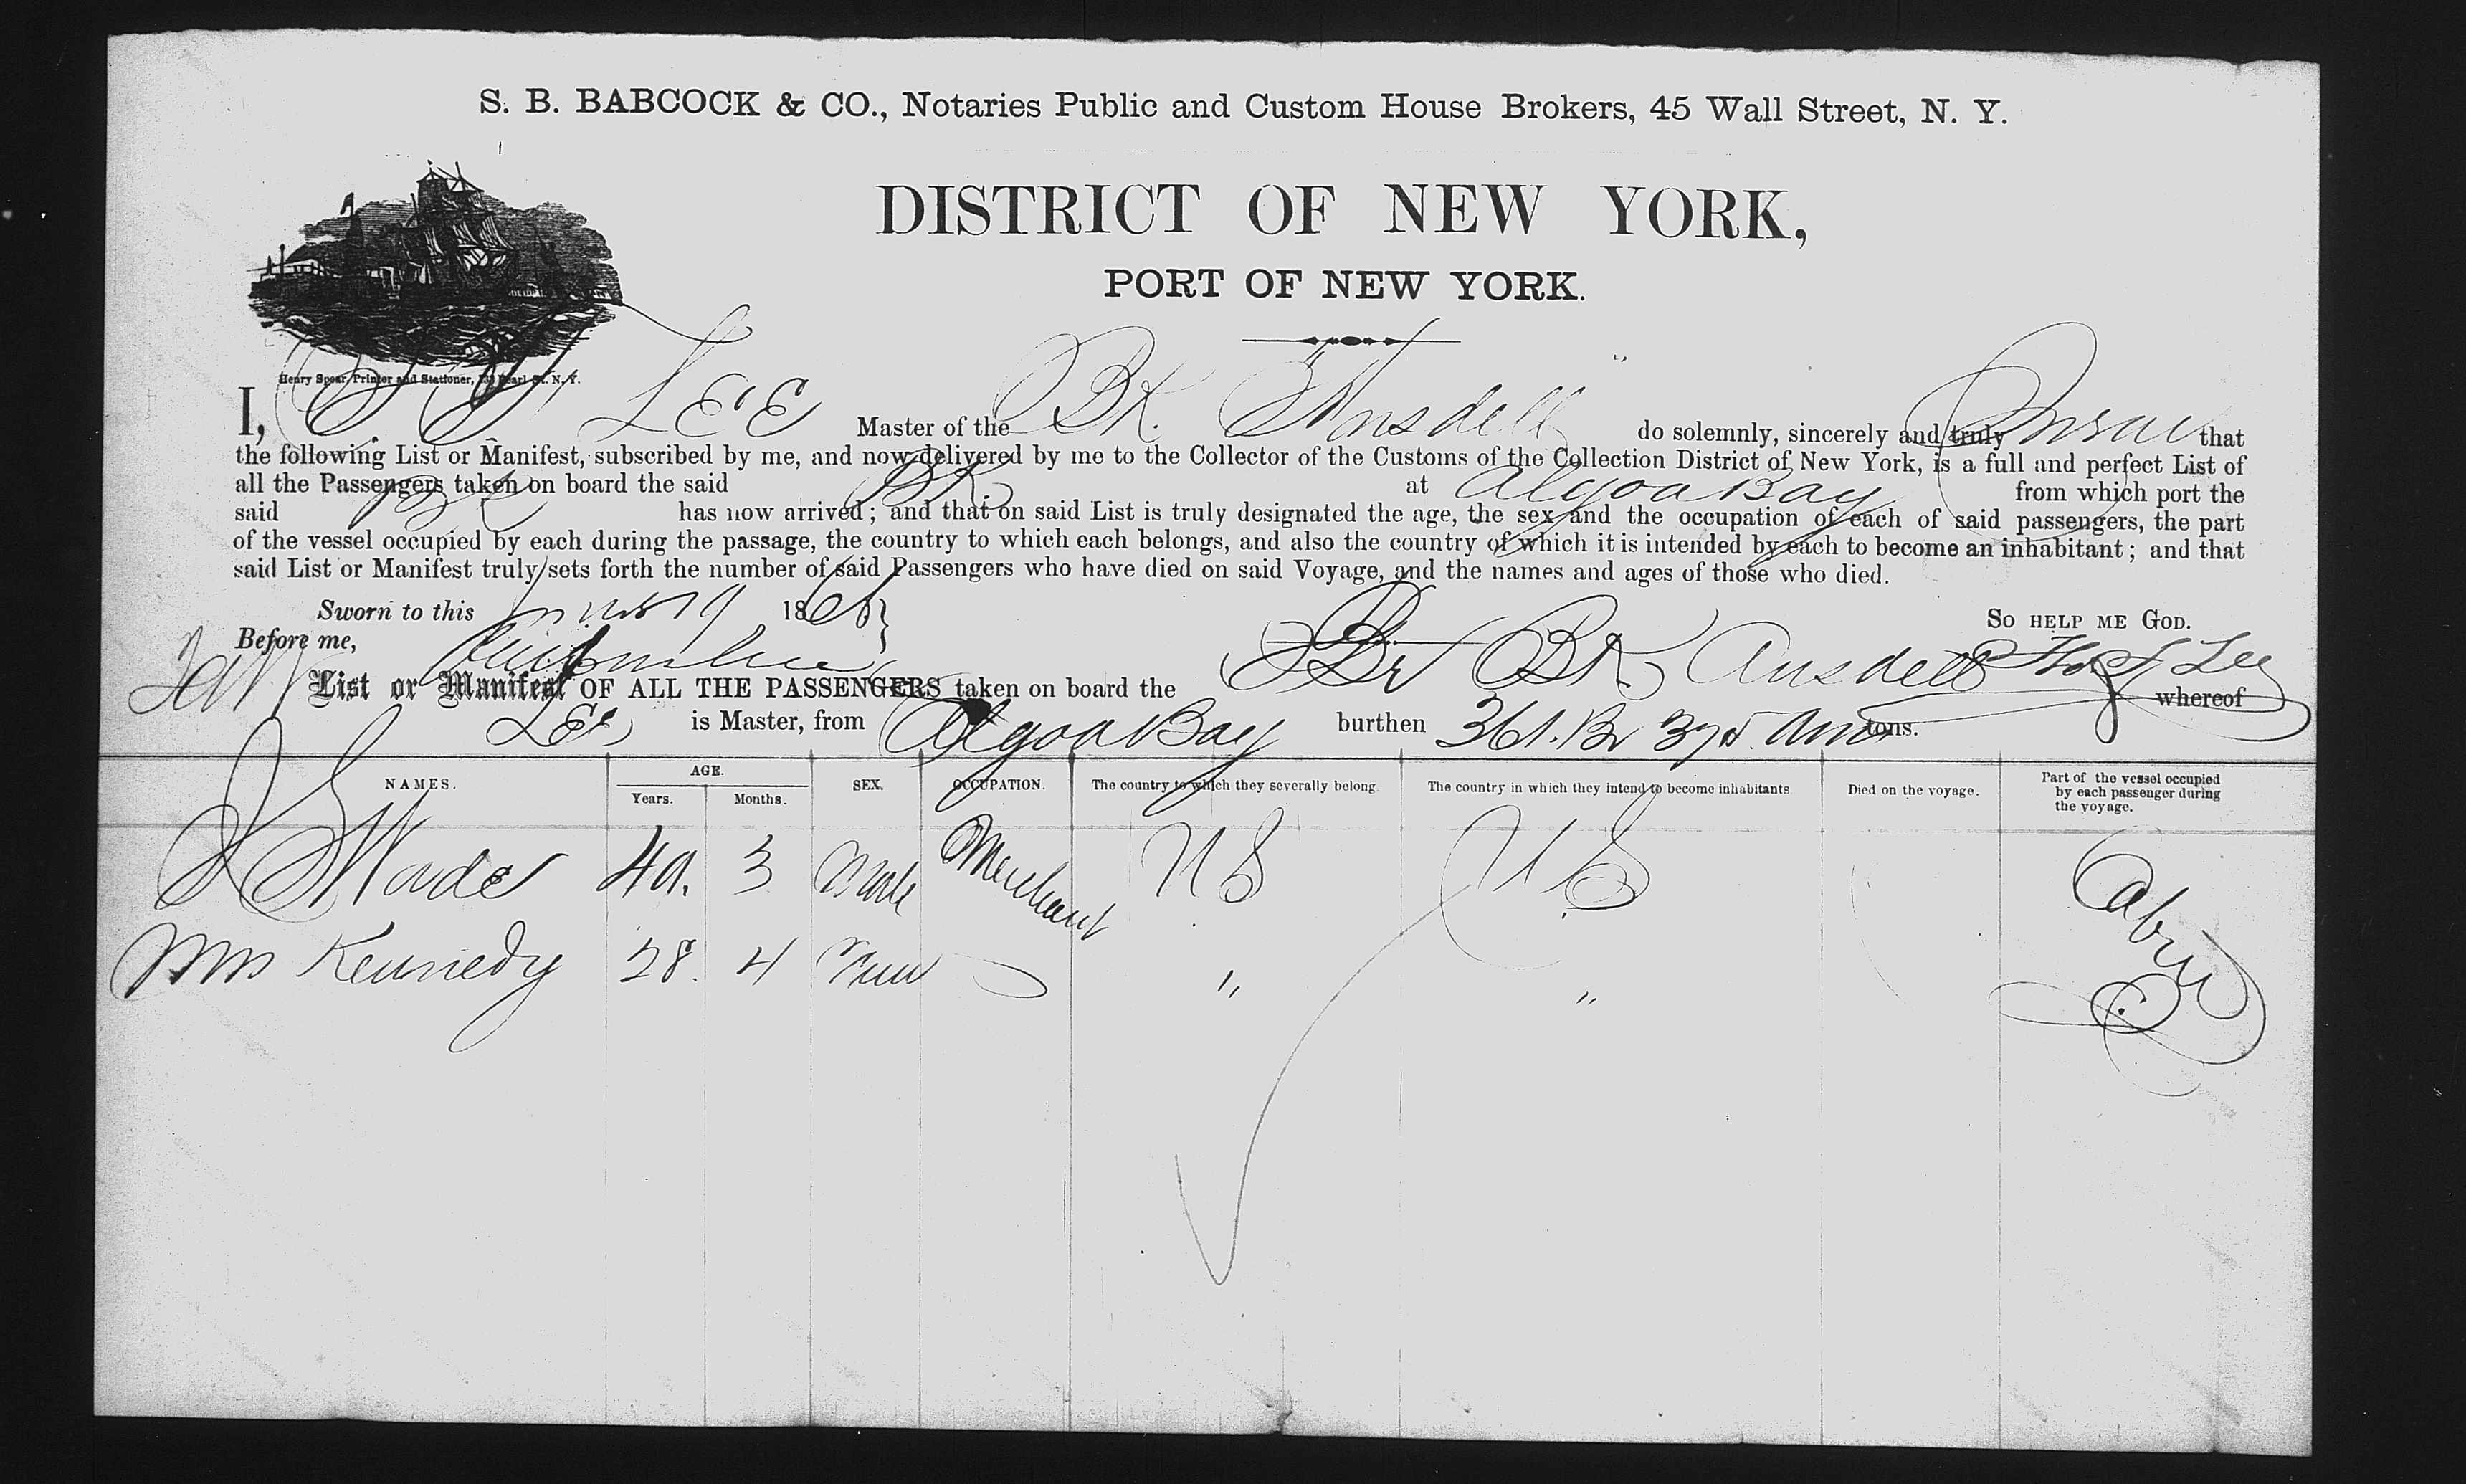 S. B. BABCOCK & CO., Notaries Public and Custom House Brokers, 45 Wall Street, N. Y.
DISTRICT OF NEW YORK,
PORT OF NEW YORK.
Henry Spear, Printer and Stationer, Pearl St. N. Y.
I, Lee Master of the Bk. Ansdell do solemnly, sincerely and truly Swear that
the following List or Manifest, subscribed by me, and now delivered by me to the Collector of the Customs of the Collection District of New York, is a full and perfect List of
all the Passengers taken on board the said Bk at Algoa Bay from which port the
said Bk has now arrived; and that on said List is truly designated the age, the sex and the occupation of each of said passengers, the part
of the vessel occupied by each during the passage, the country to which each belongs, and also the country of which it is intended by each to become an inhabitant; and that
said List or Manifest truly sets forth the number of said Passengers who have died on said Voyage, and the names and ages of those who died.
Sworn to this 19 186 SO HELP ME GOD.
Before me, Lee
List or Manifest OF ALL THE PASSENGERS taken on board the Br Bk Ansdell whereof
Lee is Master, from Algoa Bay burthen 361. Br tons.
NAMES. AGE. Years. Months. SEX. OCCUPATION. The country to which they severally belong. The country in which they intend to become inhabitants Died on the voyage. Part of the vessel occupied by each passenger during the voyage.
40. 3 Male Merchant U S U S Cabin
Mrs Kennedy 28. 4 " "